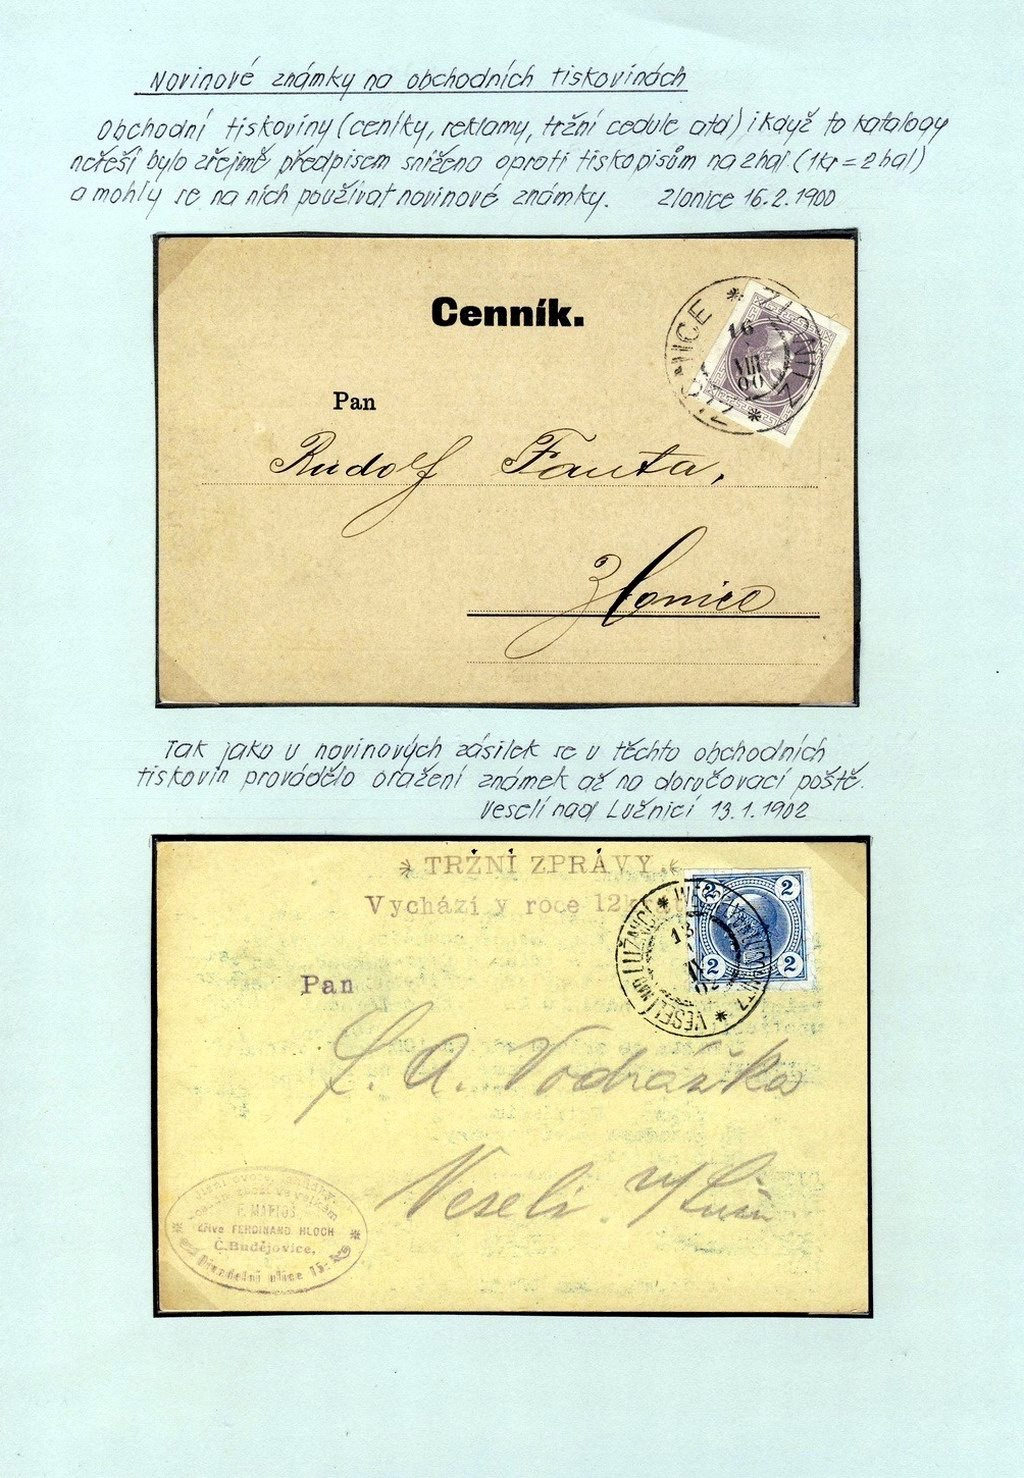 Novinové známky na obchodních tiskovinách
Obchodní tiskoviny (ceníky, reklamy, tržní cedule atd) i když to katalogy
neřeší bylo zřejmě předpisem sníženo oproti tiskopisům na 2hal (1kr = 2hal)
a mohly se na nich používat novinové známky. Zlonice 16.2.1900
Cenník.
ZLONITZ
ZLONICE
16
VIII
00
Pan
Rudolf Fanta,
Zlonice
Tak jako u novinových zásilek se u těchto obchodních
tiskovin provádělo oražení známek až na doručovací poště.
Veselí nad Lužnicí 13.1.1902
* TRŽNÍ ZPRÁVY *
Vychází v roce 12krát
2 2
2 2
VESELÍ NAD LUŽNICÍ
13
Pan
F. A. Vodrážka
Veselí n/Luž.
F. MARTOŠ
dříve FERDINAND HLOCH
Č. Budějovice,
ulice 15.